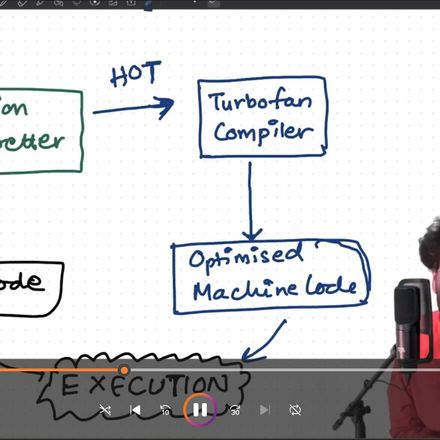 HOT
Turbofan
Compiler
Optimised
Machine Code
EXECUTION
10
30